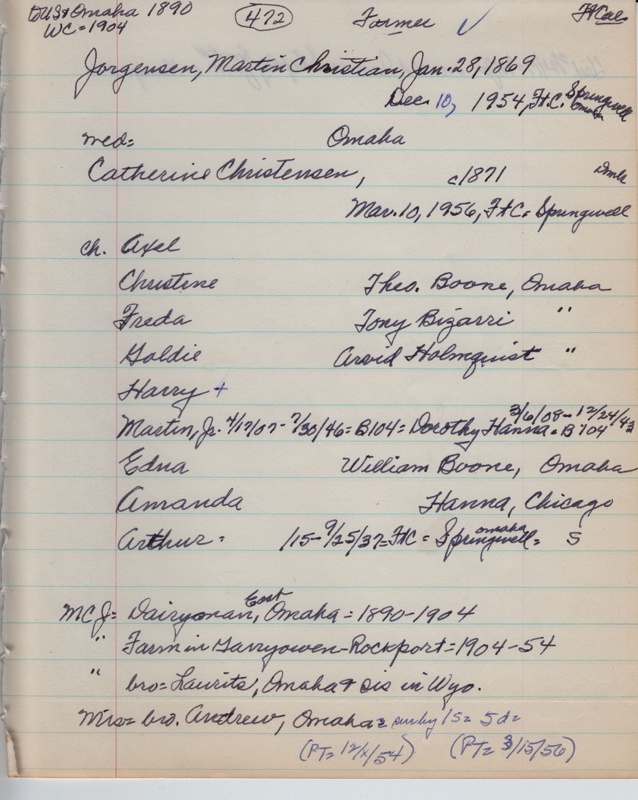 to US & Omaha 1890 472 Farmer ✓
WC = 1904
Jorgensen, Martin Christian, Jan. 28, 1869
Dec. 10, 1954, FHC. Springwell
Omaha
med= Omaha
Catherine Christensen, c1871 Dmk
Mar. 10, 1956, FHC = Springwell
ch. Axel
Christine Theo. Boone, Omaha
Freda Tony Bizarri "
Goldie Arvid Holmquist "
Harry +
3/6/08 - 12/24/43
Martin, Jr. 4/17/07 - 7/30/46 = B104 = Dorothy Hanna = B104
Edna William Boone, Omaha
Amanda Hanna, Chicago
Omaha
Arthur = /15 - 9/25/37 = FHC = Springwell = S
East
MCJ = Dairyman, Omaha = 1890-1904
" Farm in Garryowen-Rockport = 1904-54
" bro = Laurits, Omaha & sis in Wyo.
Mrs = bro. Andrew, Omaha = sur by 1s = 5d =
(PT = 12/ /54) (PT = 3/15/56)